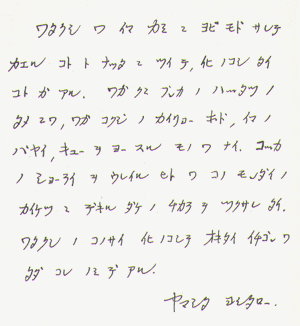 ワタクシ ワ イマ カミ ニ ヨビモドサレテ
カエル コト ト ナッタ ニ ツイテ, イヒノコシタイ
コト ガ アル. ワガ クニ ブンカ ノ ハッタツ ノ
タメ ニワ, ワガ コクジ ノ カイリョー ホド, イマ ノ
バヤイ, キュー ヲ ヨースル モノ ワ ナイ. コッカ
ノ ショーライ ヲ ウレイル ヒト ワ コノ モンダイ ノ
カイケツ ニ デキル ダケ ノ チカラ ヲ ツクサレタイ.
ワタクシ ノ コノサイ イヒノコシテ オキタイ イチゴン ワ
タダ コレ ノミ デ アル.
ヤマシタ ヨシタロー.